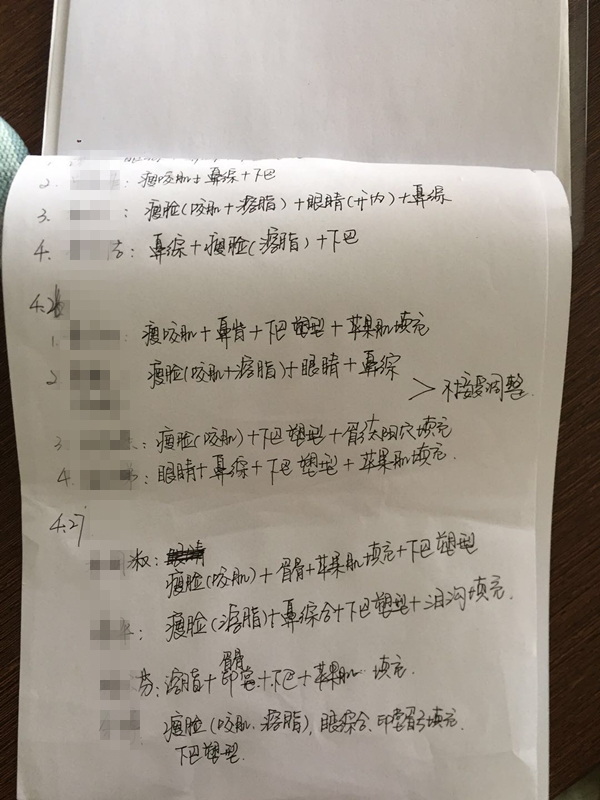 2. : 瘦咬肌+鼻综+下巴
3. : 瘦脸(咬肌+溶脂)+眼睛(开内)+鼻综
4. : 鼻综+瘦脸(溶脂)+下巴
4.26
1. 瘦咬肌+鼻背+下巴塑型+苹果肌填充
2 瘦脸(咬肌+溶脂)+眼睛+鼻综
> 不接受调整.
3 : 瘦脸(咬肌)+下巴塑型+太阳穴填充
4. : 眼睛+鼻综+下巴塑型+苹果肌填充.
4.27
: 瘦脸(咬肌)+眉骨+苹果肌填充+下巴塑型
: 瘦脸(溶脂)+鼻综合+下巴塑型+泪沟填充.
眉骨
芬: 溶脂+印堂+下巴+苹果肌 填充.
瘦脸(咬肌、溶脂), 眼综合、印堂填充.
下巴塑型.